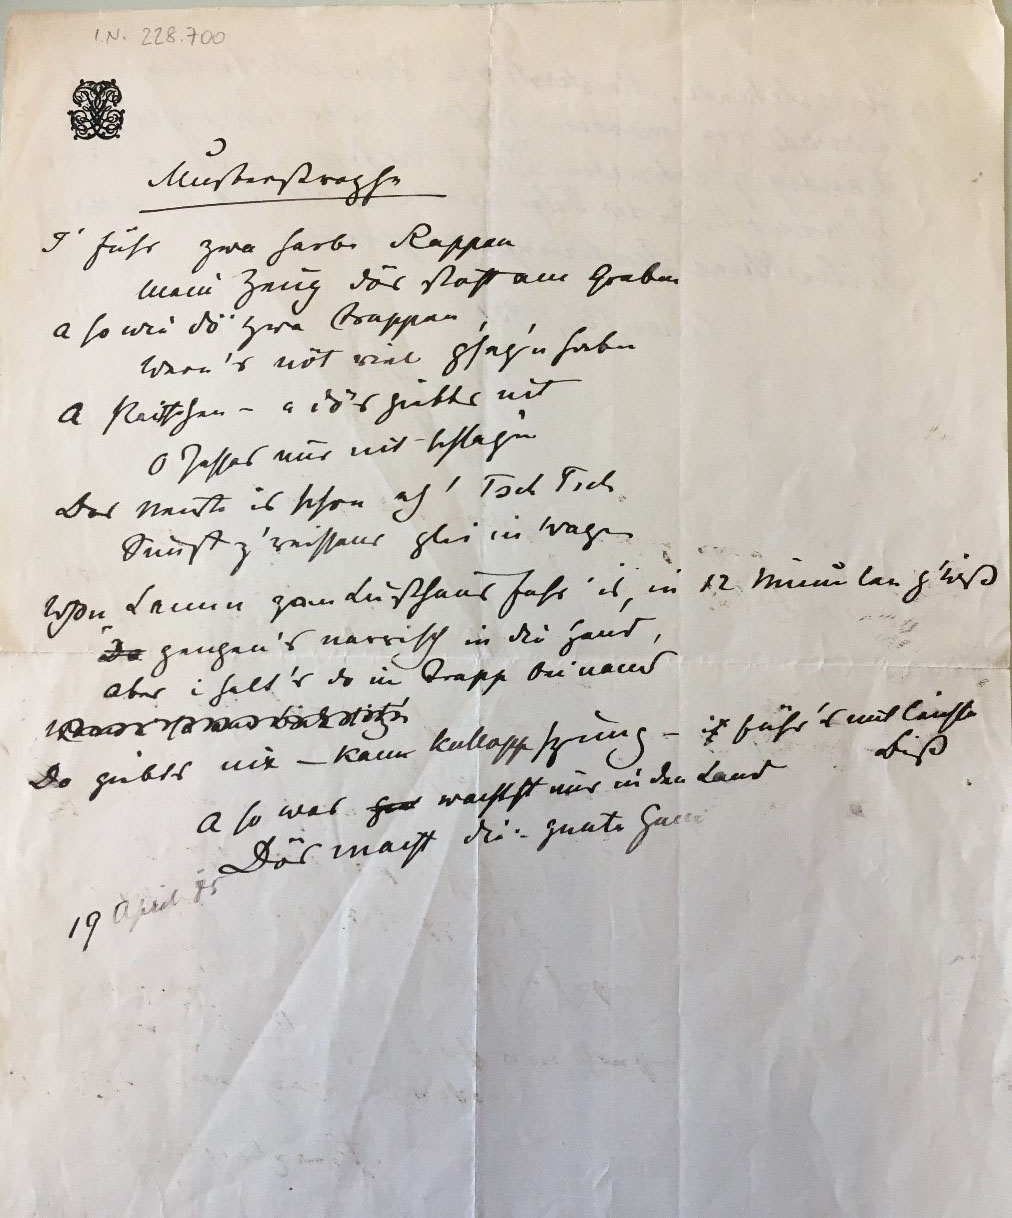 I.N. 228.700
Musterstrophe
I' führ zwa harbe Rappen
Mein Zeug dös steht am Graben
A so wie dö zwa trappen,
Wern's nöt viel g'seg'n haben
A Peitschen – a dös giebts nit
O Jesses nur nit schlag'n
Das Meiste is schon ah' Tsch Tsch
Sunst z'reissens glei in Wagen
Von Lamm zum Lusthaus fahr' is, in 12 Minuten g'wiß
Da gengen's narrisch in die Händ,
aber i halt's do in Trapp beinand
Da giebts nix – kann Kallopp sprung – i führ's mit leichte
Biß
A so was wachst nur in den Land
Dös macht die guate Hand
19 April 85